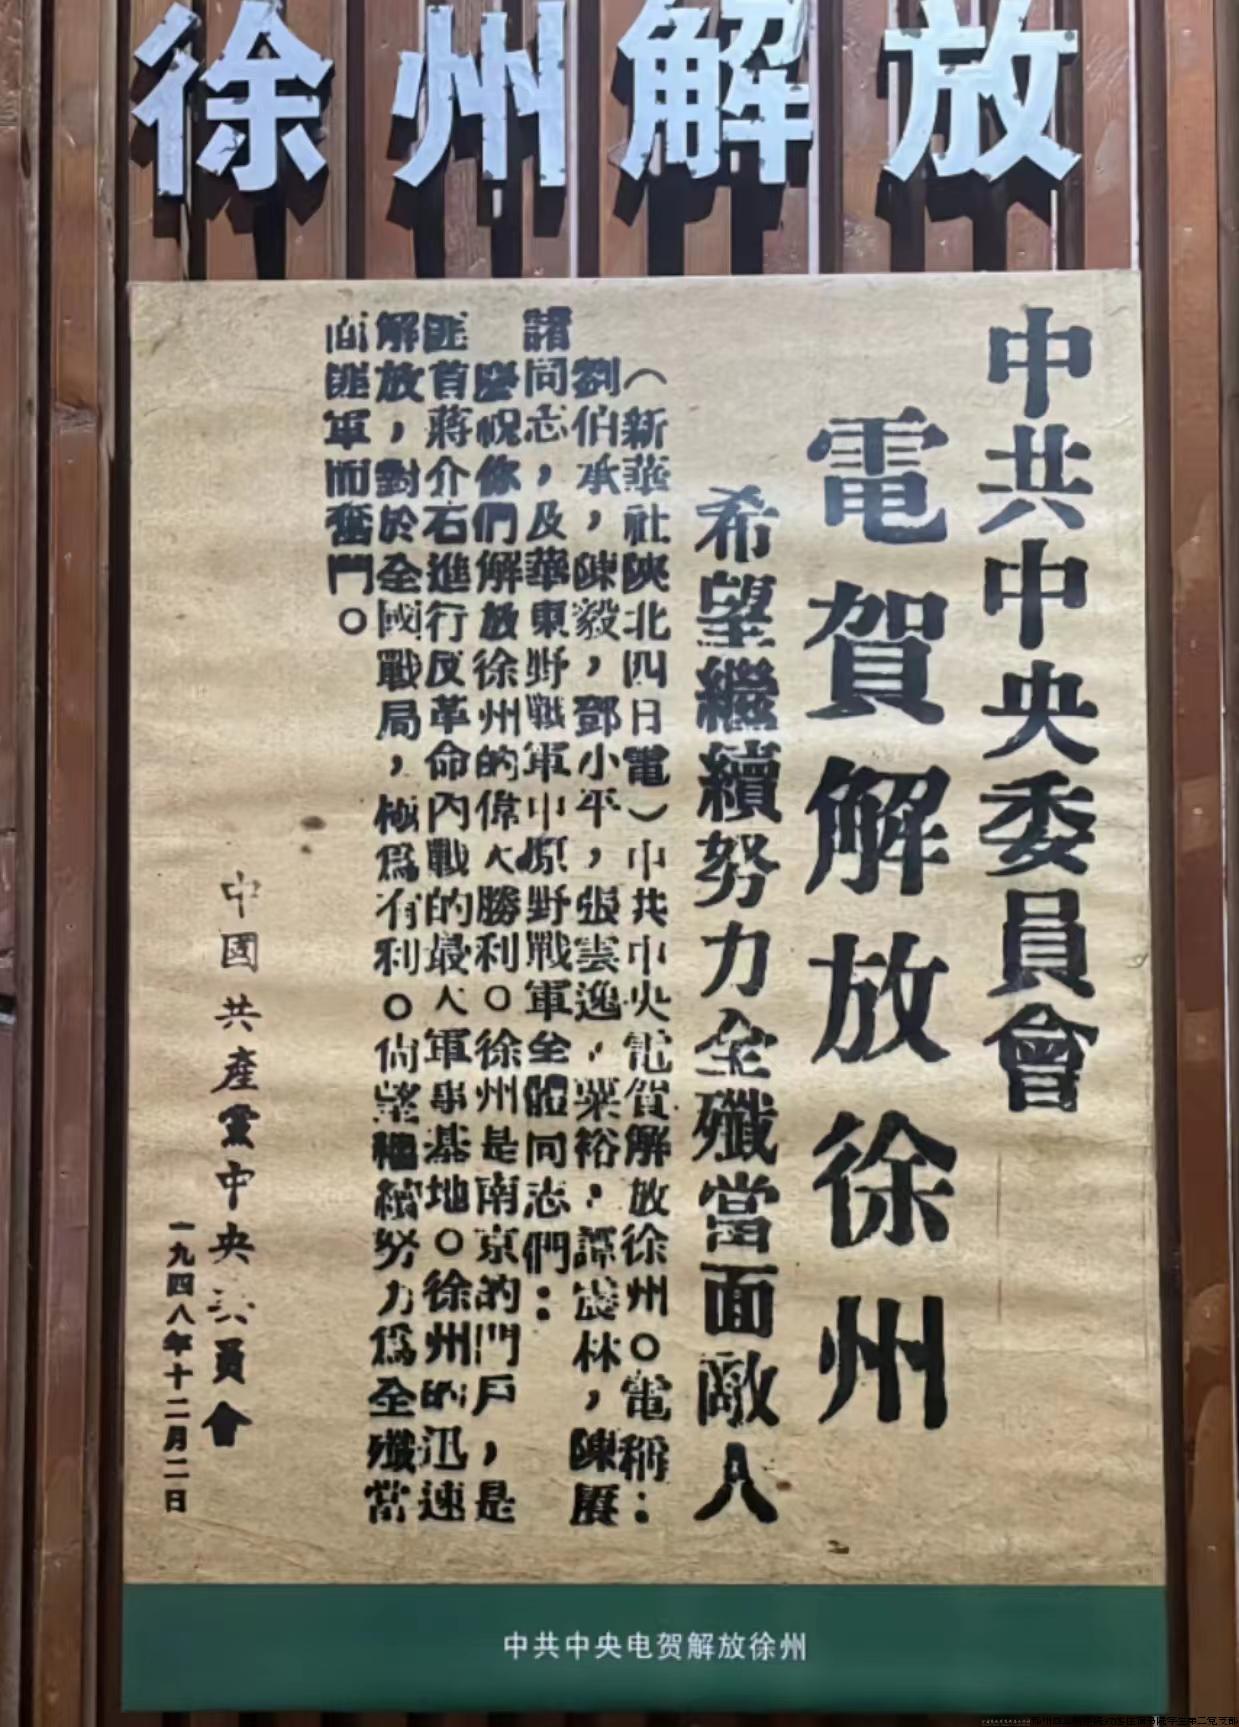 徐州解放
中共中央委員會
電賀解放徐州
希望繼續努力全殲當面敵人
（新華社陝北四日電）中共中央電賀解放徐州。電稱：
劉伯承，陳毅，鄧小平，張雲逸，粟裕，譚震林，陳賡
諸同志，及華東野戰軍中原野戰軍全體同志們：
慶祝你們解放徐州的偉大勝利。徐州是南京的門戶，是
匪首蔣介石進行反革命內戰的最大軍事基地。徐州的迅速
解放，對於全國戰局，極爲有利。尙望繼續努力爲全殲當
面匪軍而奮鬥。
中國共產黨中央委員會
一九四八年十二月二日
中共中央电贺解放徐州